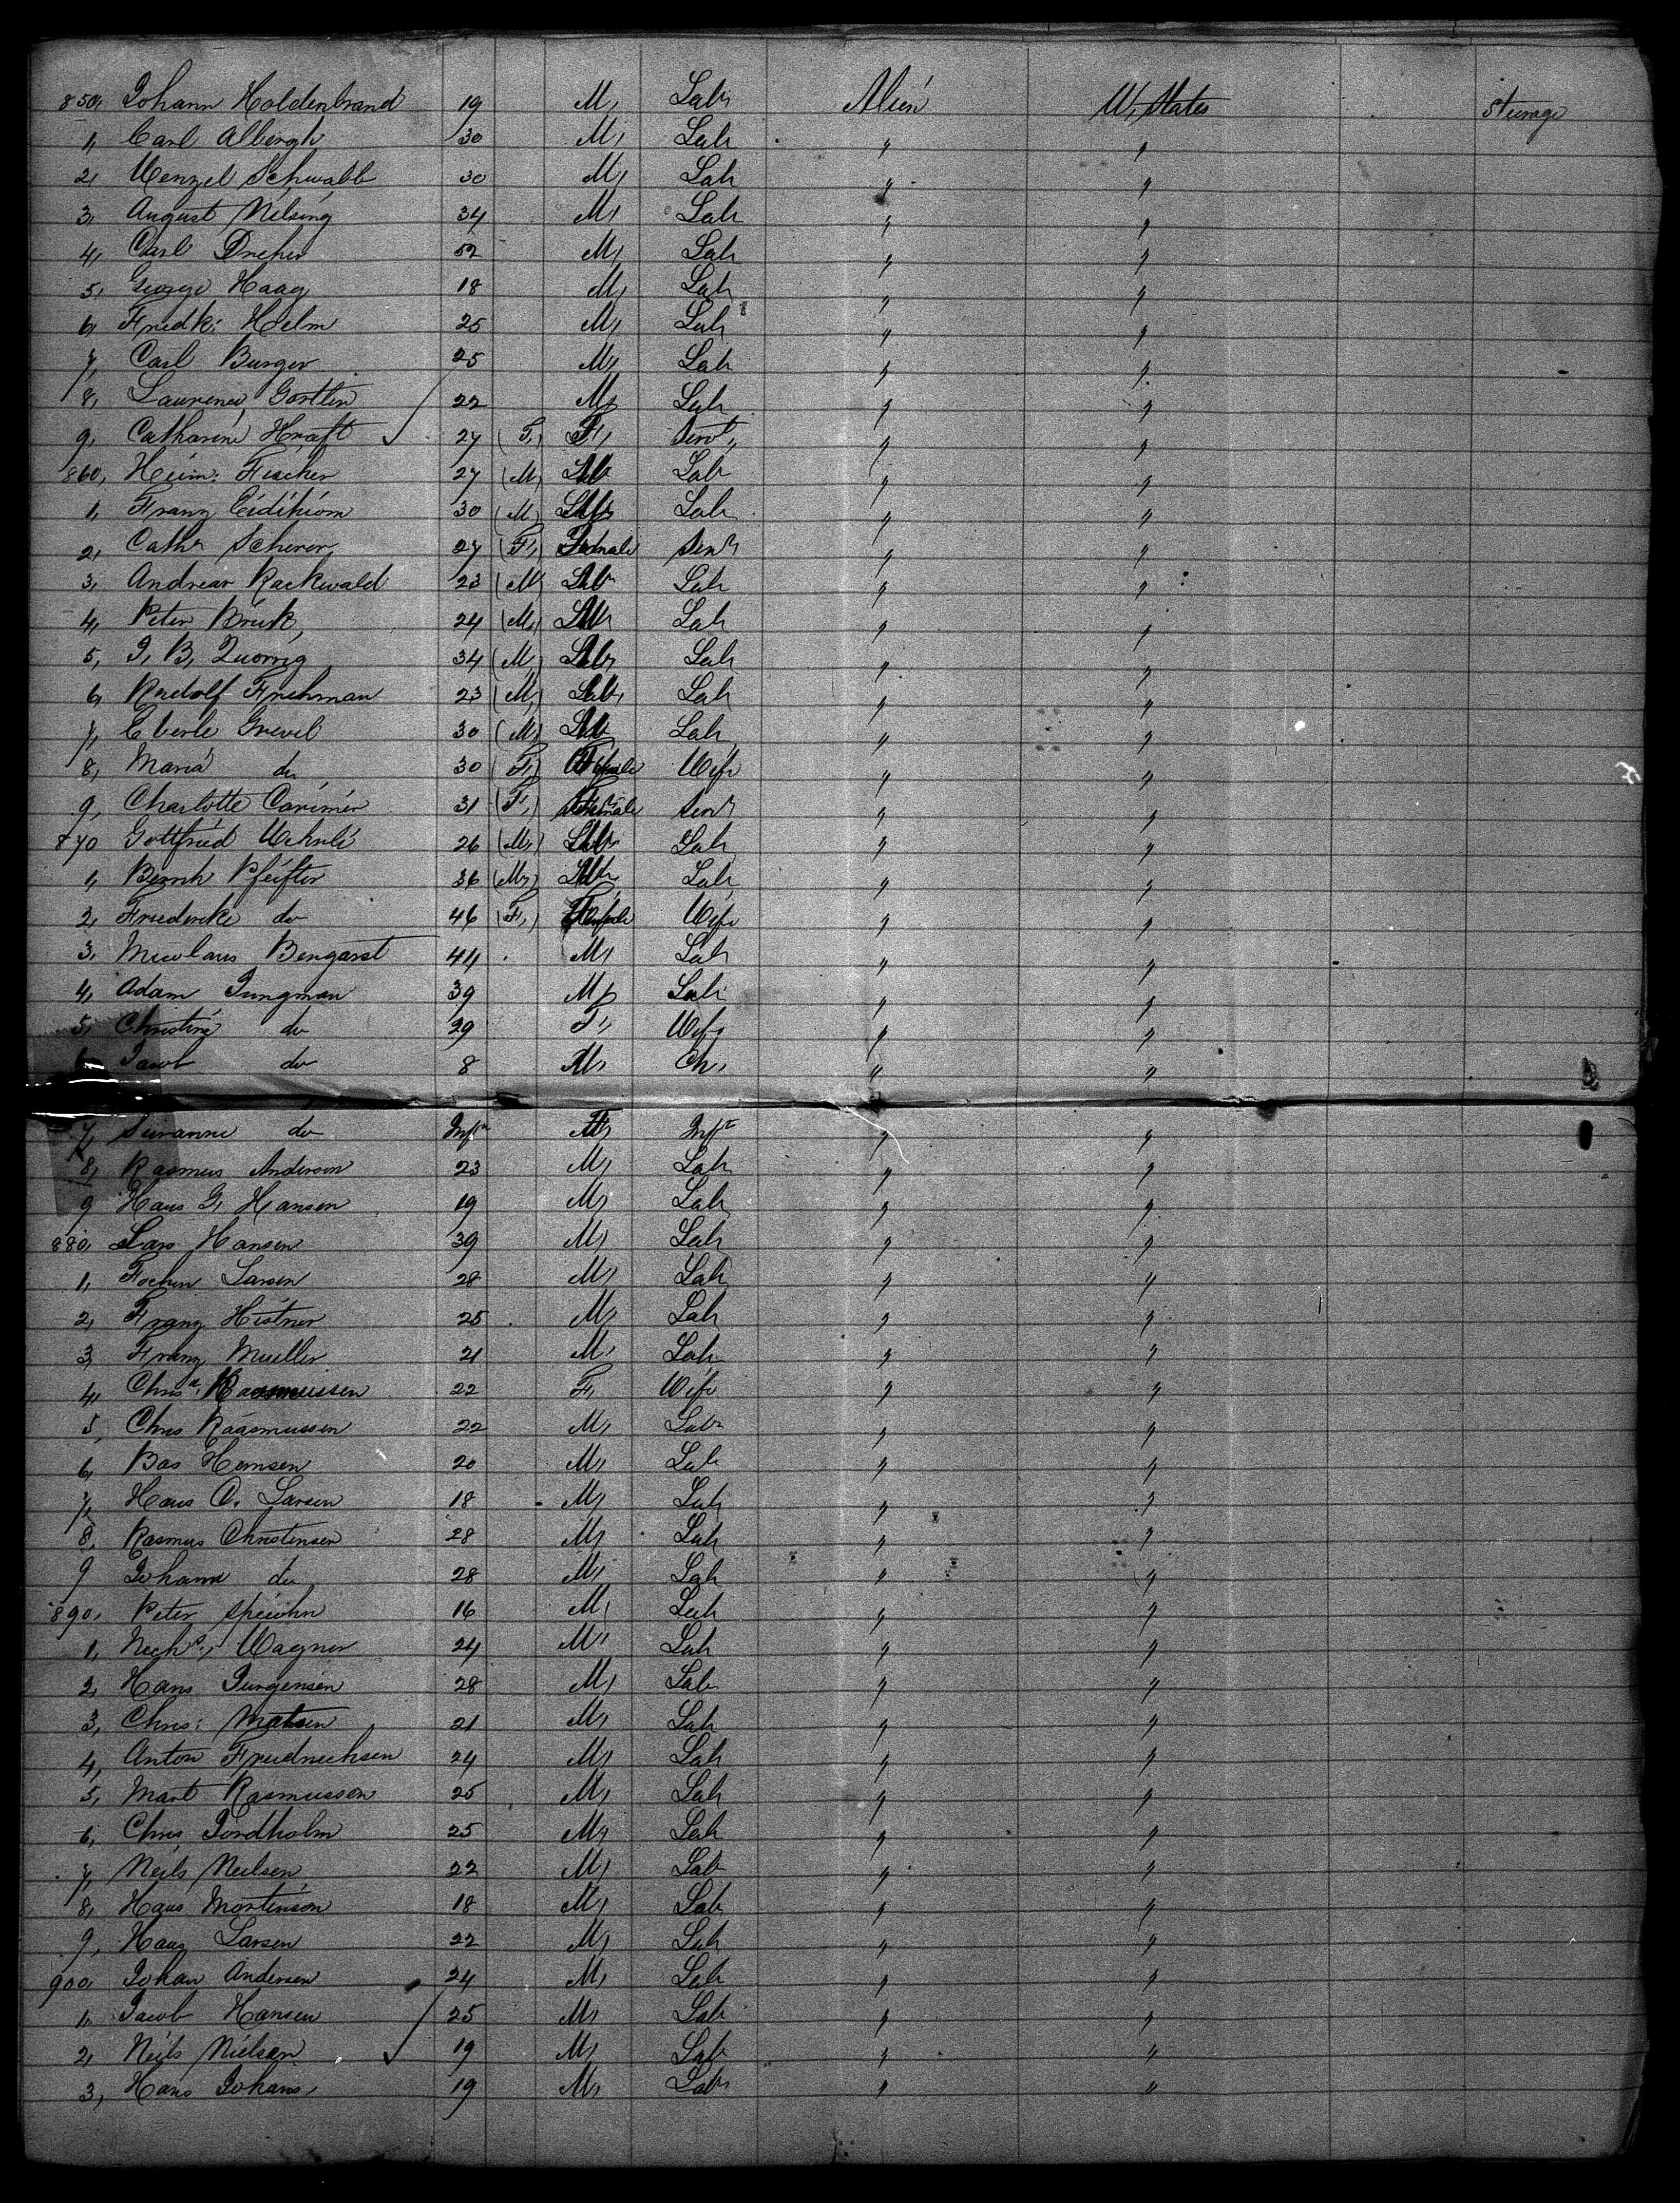 850, Johann Holdenbrand 19 M, Labr Alien U, States Steerage
1, Carl Albergh 30 M, Lab " "
2, Wenzel Schwabb 30 M, Lab " "
3, August Nilsing 34 M, Lab " "
4, Carl Dreher 52 M, Lab " "
5, George Haag 18 M, Lab " "
6, Fredk: Helm 25 M, Lab " "
7, Carl Burger 25 M, Lab " "
8, Laurence Gostlin 22 M, Lab " "
9, Catharine Kraft 27 (F,) F, Servt " "
860, Heim: Fischer 27 (M) Lab " "
1, Franz 30 (M) Lab " "
2, Cathr Scherer 27 (F,) Female Servt " "
3, Andreas Rackwald 23 (M Lab " "
4, Peter Bruck, 24 (M,) Lab " "
5, J, B, 34 (M, Lab " "
6, Rudolf Frehman 23 (M,) Lab " "
7, Eberle Grevel 30 (M) Lab " "
8, Maria do 30 (F,) Female Wife " "
9, Charlotte 31 (F,) Female Servt " "
870 Gottfried 26 (M,) Lab " "
1, Bernh Pfeifter 36 (M,) Lab " "
2, Friedericke do 46 (F,) Female Wife " "
3, Nicolaus Bengarst 44 M, Lab " "
4, Adam Jungman 39 M, Lab " "
5, Christine do 29 F, Wife " "
6, Jacob do 8 M, Ch, " "
7, Susanne do Inft F, Inft " "
8, Rasmus Anderson 23 M, Lab " "
9 Hans G, Hansen 19 M, Lab " "
880, Lars Hansen 39 M, Lab " "
1, Jochem Larsen 28 M, Lab " "
2, Franz Histner 25 M, Lab " "
3, Franz Mueller 21 M, Lab " "
4, Chrisa, Rasmussen 22 F, Wife " "
5, Chris Raasmussen 22 M, Labr " "
6, Bas Hemsen 20 M, Lab " "
7, Hans O. Larsen 18 M, Lab " "
8, Rasmus Christensen 28 M, Lab " "
9 Johann do 28 M, Lab " "
890, Peter 16 M, Lab " "
1, Wagner 24 M, Lab " "
2, Hans Jurgensen 28 M, Lab " "
3, Chris: Matsen 21 M, Lab " "
4, Anton Friedrichsen 24 M, Lab " "
5, Mart Rasmussen 25 M, Lab " "
6, Chris Jordholm 25 M, Lab " "
7, Neils Neilsen 22 M, Lab " "
8, Hans Mortinson 18 M, Lab " "
9, Hans Larsen 22 M, Lab " "
900, Johan Andersen 24 M, Lab " "
1, Jacob Hansen 25 M, Lab " "
2, Neils Nielsen 19 M, Lab " "
3, Hans Johans 19 M, Labr " "